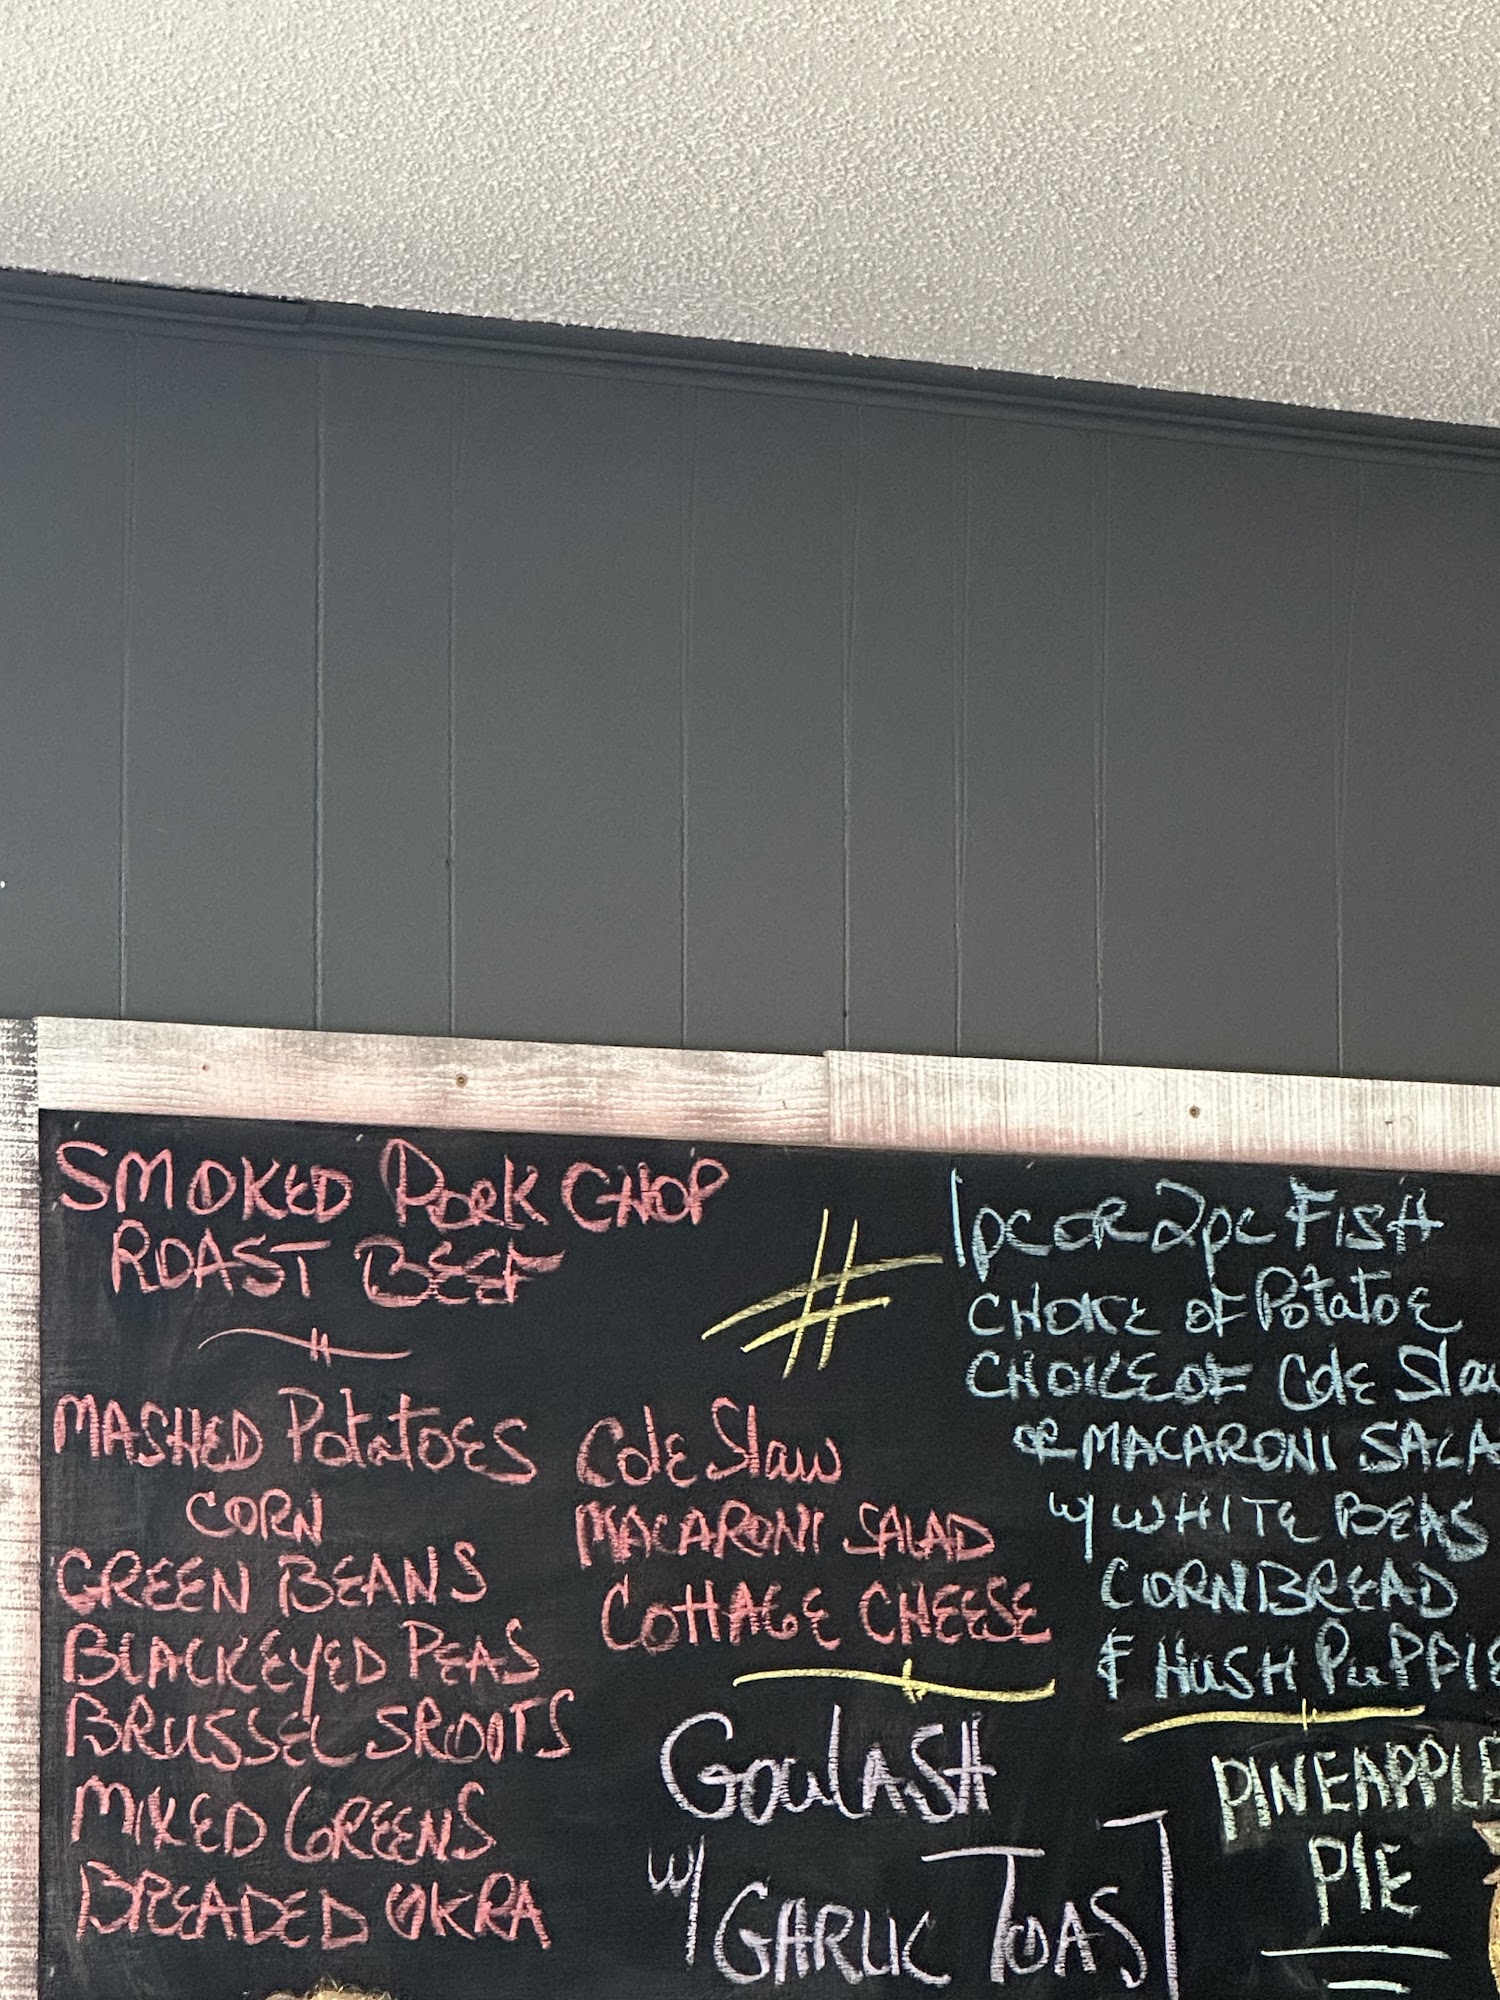 SMOKED PORK CHOP
ROAST BEEF
MASHED POTATOES
CORN
GREEN BEANS
BLACKEYED PEAS
BRUSSEL SROUTS
MIXED GREENS
BREADED OKRA
Cole Slaw
MACARONI SALAD
COTTAGE CHEESE
GOULASH
w/ GARLIC TOAST
1pc OR 2pc FISH
CHOICE OF POTATOE
CHOICE OF Cole Slaw
OR MACARONI SALA
w/ WHITE BEAS
CORNBREAD
& HUSH PUPPIE
PINEAPPLE
PIE